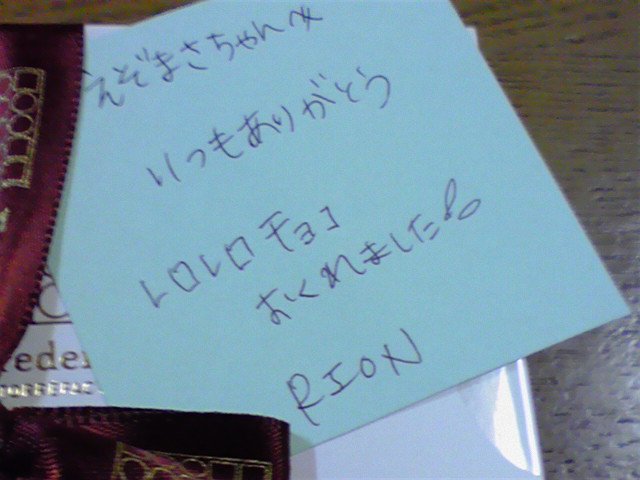 えぞまさちゃんへ
いつもありがとう
レロレロチョコ
おくれました
RION
reder